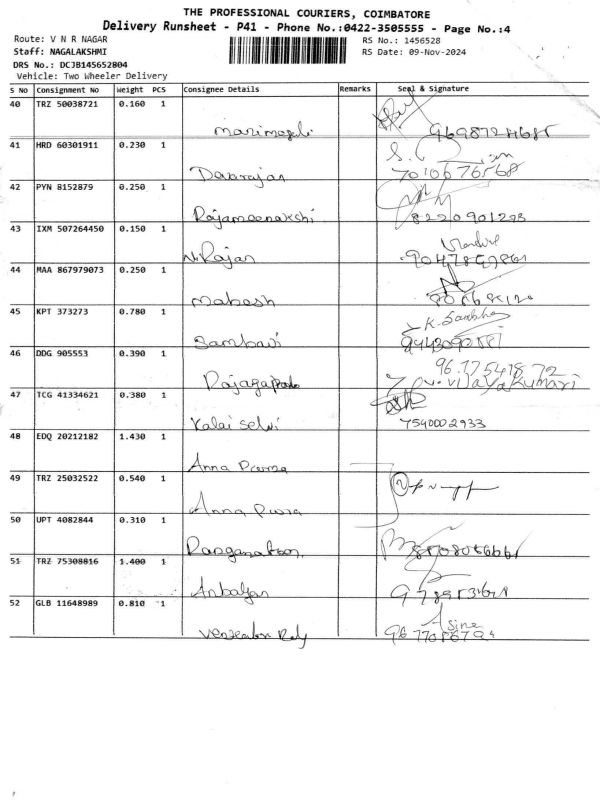 THE PROFESSIONAL COURIERS, COIMBATORE
Delivery Runsheet - P41 - Phone No.:0422-3505555 - Page No.:4
Route: V N R NAGAR
RS No.: 1456528
Staff: NAGALAKSHMI
RS Date: 09-Nov-2024
DRS No.: DCJB145652804
Vehicle: Two Wheeler Delivery
S No Consignment No Weight PCS Consignee Details Remarks Seal & Signature
40 TRZ 50038721 0.160 1
41 HRD 60301911 0.230 1
Devarajan 7010676568
42 PYN 8152879 0.250 1
Rajameenakshi 8220901293
43 IXM 507264450 0.150 1
Rajan
44 MAA 867979073 0.250 1
Mahesh
45 KPT 373273 0.780 1
K. Sambhavi
Sambavi
46 DDG 905553 0.390 1
96 77541872
V. Vijayakumari
47 TCG 41334621 0.380 1
Kalai Selvi 7540002933
48 EDQ 20212182 1.430 1
Anna Purna
49 TRZ 25032522 0.540 1
Anna Purna
50 UPT 4082844 0.310 1
51 TRZ 75308816 1.400 1
52 GLB 11648989 0.810 1